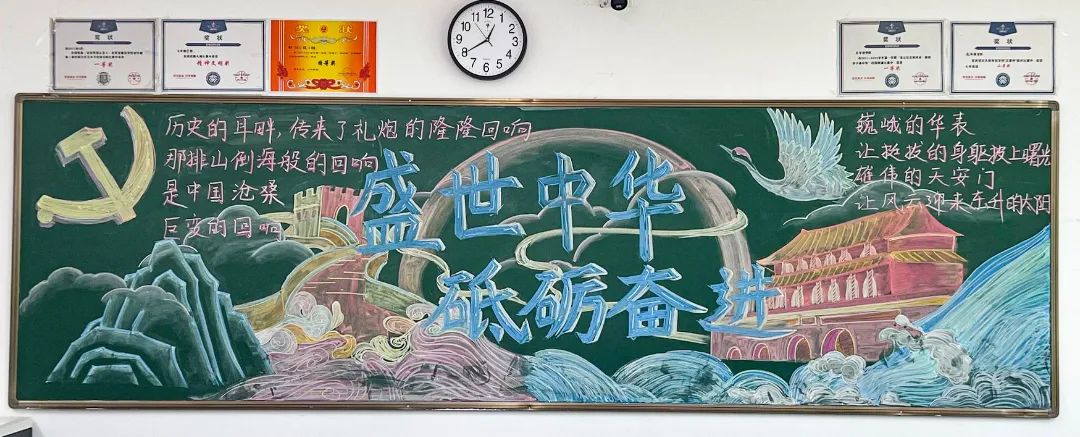 奖状
奖状
奖状
奖状
奖状
一等奖
精神文明奖
特等奖
历史的耳畔,传来了礼炮的隆隆回响
那排山倒海般的回响
是中国沧桑
巨变的回响
盛世中华
砥砺奋进
巍峨的华表
让挺拔的身躯披上曙光
雄伟的天安门
让风云迎来东升的太阳